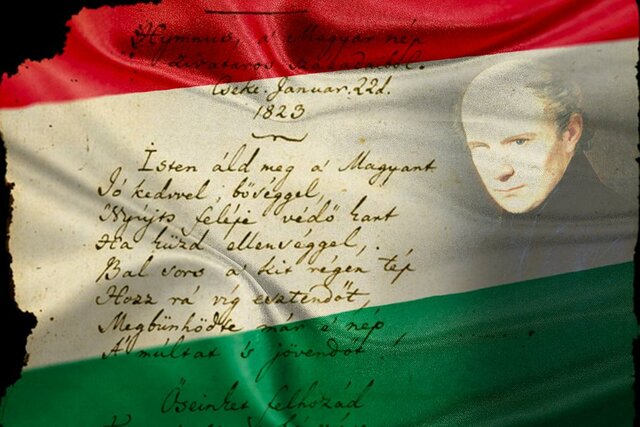 Hymnus, a' Magyar nép
zivataros századaiból.
Cseke. Januar. 22d.
1823
Isten áld meg a' Magyart
Jó kedvvel, bőséggel,
Nyújts feléje védő kart
Ha küzd ellenséggel,
Bal sors a' kit régen tép
Hozz rá víg esztendőt,
Megbűnhödte már e' nép
A' múltat 's jövendőt!
Őseinket felhozád